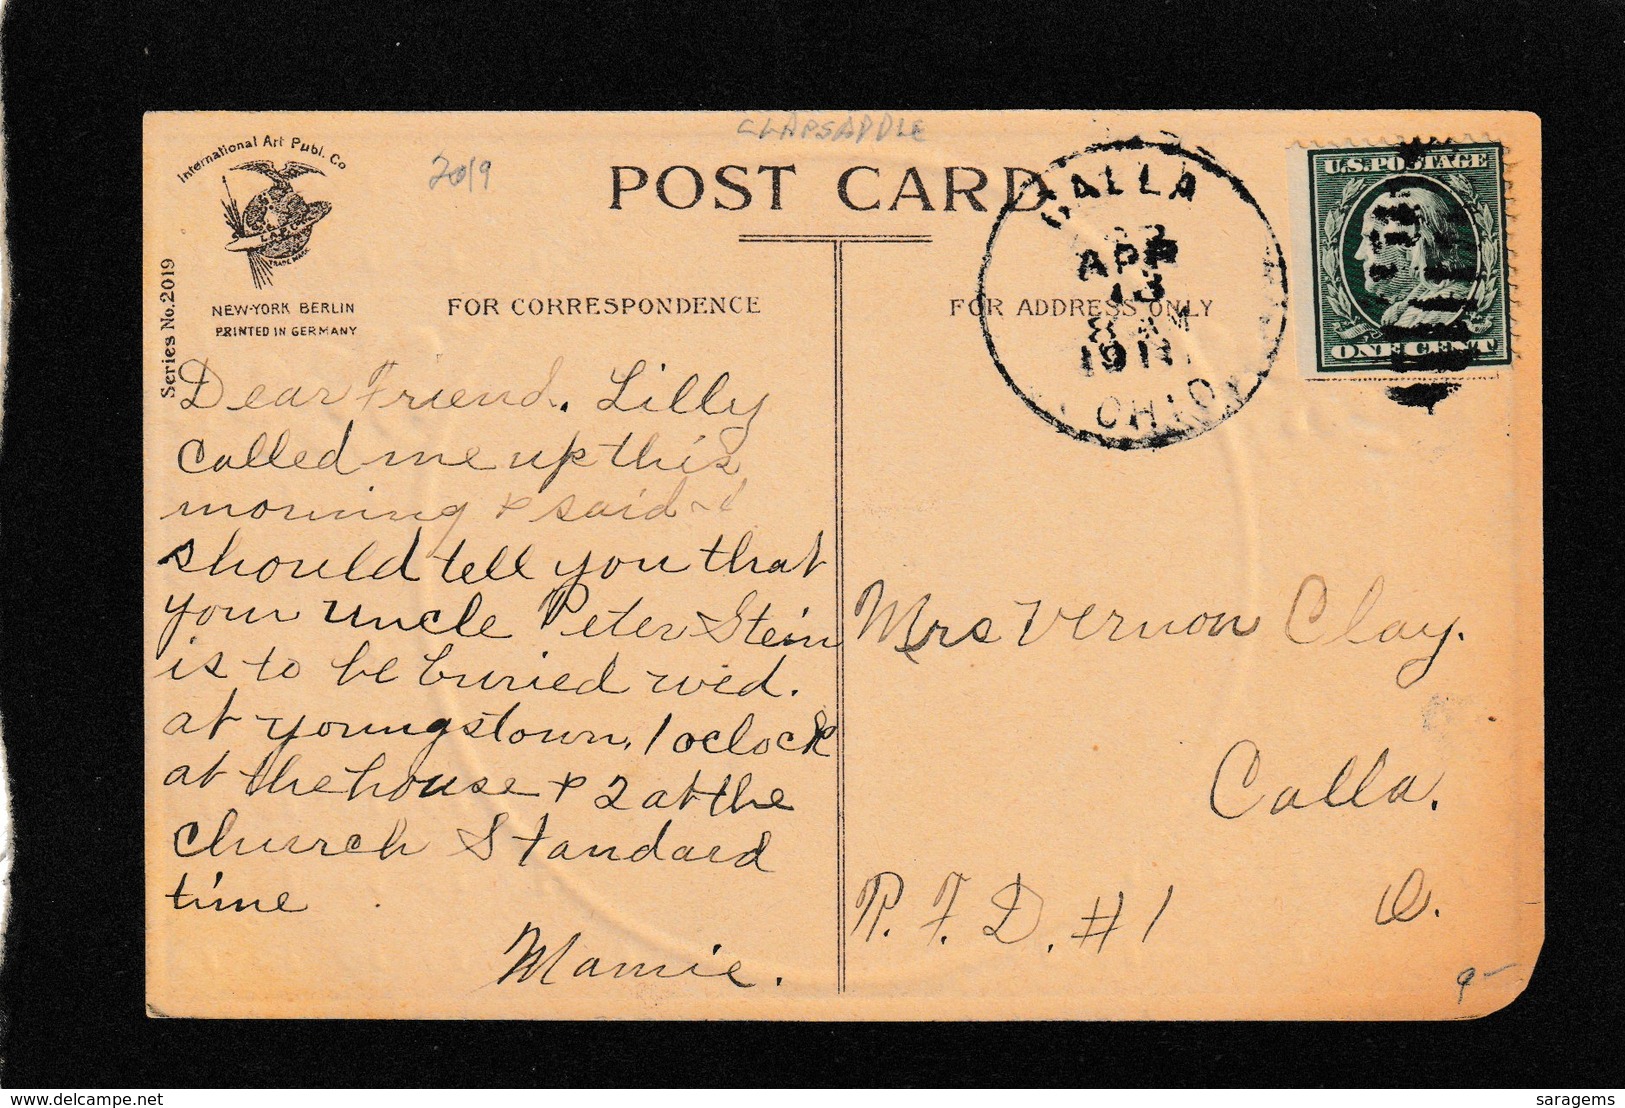 CLAPSADDLE
International Art Publ. Co
2019
POST CARD
I.A.P.Co.
TRADE MARK
NEW-YORK BERLIN
PRINTED IN GERMANY
Series No. 2019
FOR CORRESPONDENCE
FOR ADDRESS ONLY
CALLA
APR
13
AM
OHIO
U.S. POSTAGE
ONE CENT
Dear Friend. Lilly
called me up this
morning & said I
should tell you that
your uncle Peter Stein
is to be buried wed.
at Youngstown, 1 oclock
at the house & 2 at the
Church Standard
time
Mamie.
Mrs Vernon Clay.
Calla.
O.
R. F. D. #1
9-
delcampe.net
saragems